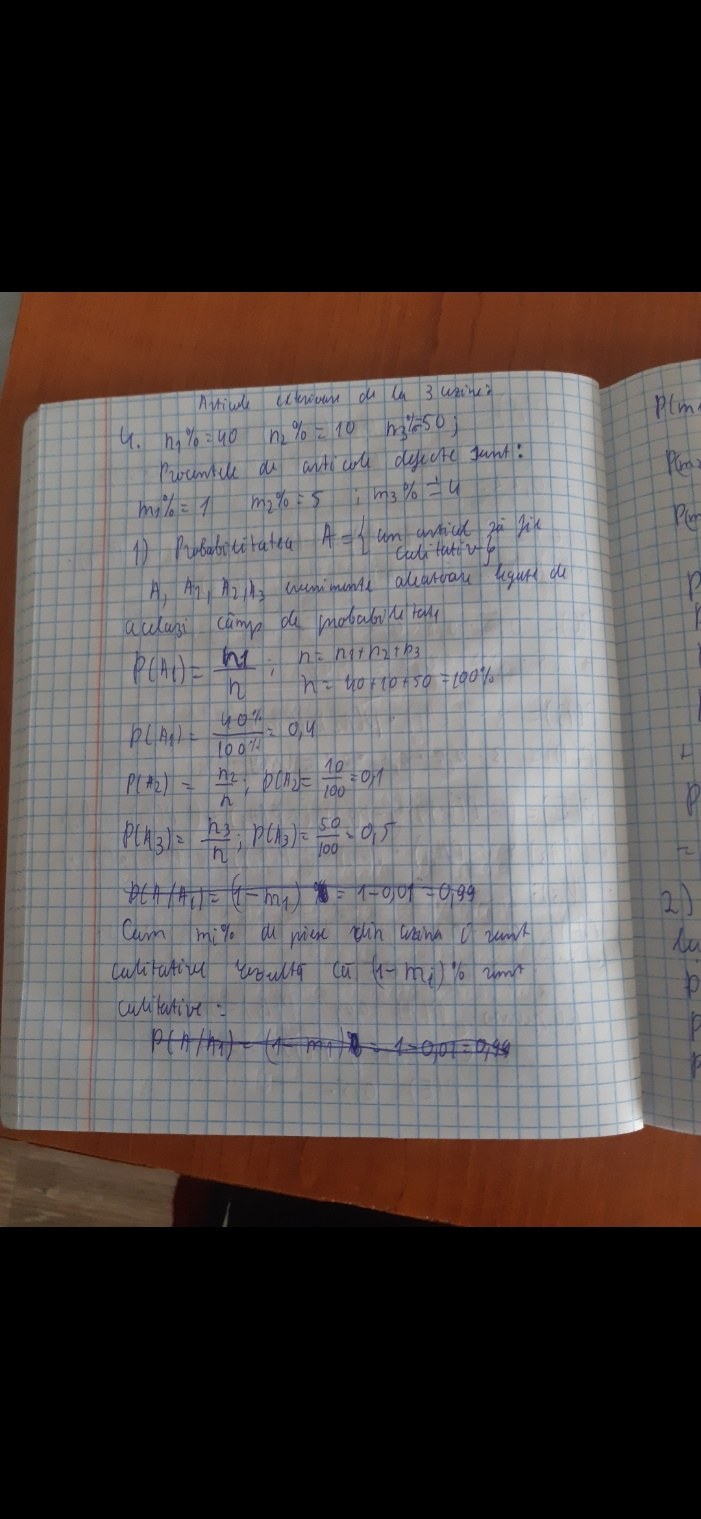 Articole exterioare de la 3 uzine:
4. n1%=40 n2%=10 n3%=50;
Procentele de articole defecte sunt:
m1%=1 m2%=5 ; m3%=4
1) Probabilitatea A={un articol să fie
calitativ}
A, A1, A2, A3 evenimente aleatoare legate de
același câmp de probabilitate
P(A1)= n1/n ; n=n1+n2+n3
n=40+10+50=100%
P(A1)= 40%/100% = 0,4
P(A2) = n2/n ; P(A2)= 10/100 =0,1
P(A3)= n3/n ; P(A3)= 50/100 = 0,5
P(A/A1)=(1-m1) = 1-0,01=0,99
Cum mi% de piese din uzina i sunt
calitative rezultă că (1-mi)% sunt
calitative:
P(A/A1) = (1-m1) = 1-0,01=0,99
P(m
P(m
P(m
P
+
P
=
2)
P
P
P